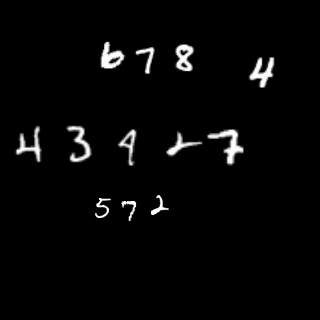 678 4
43927
572